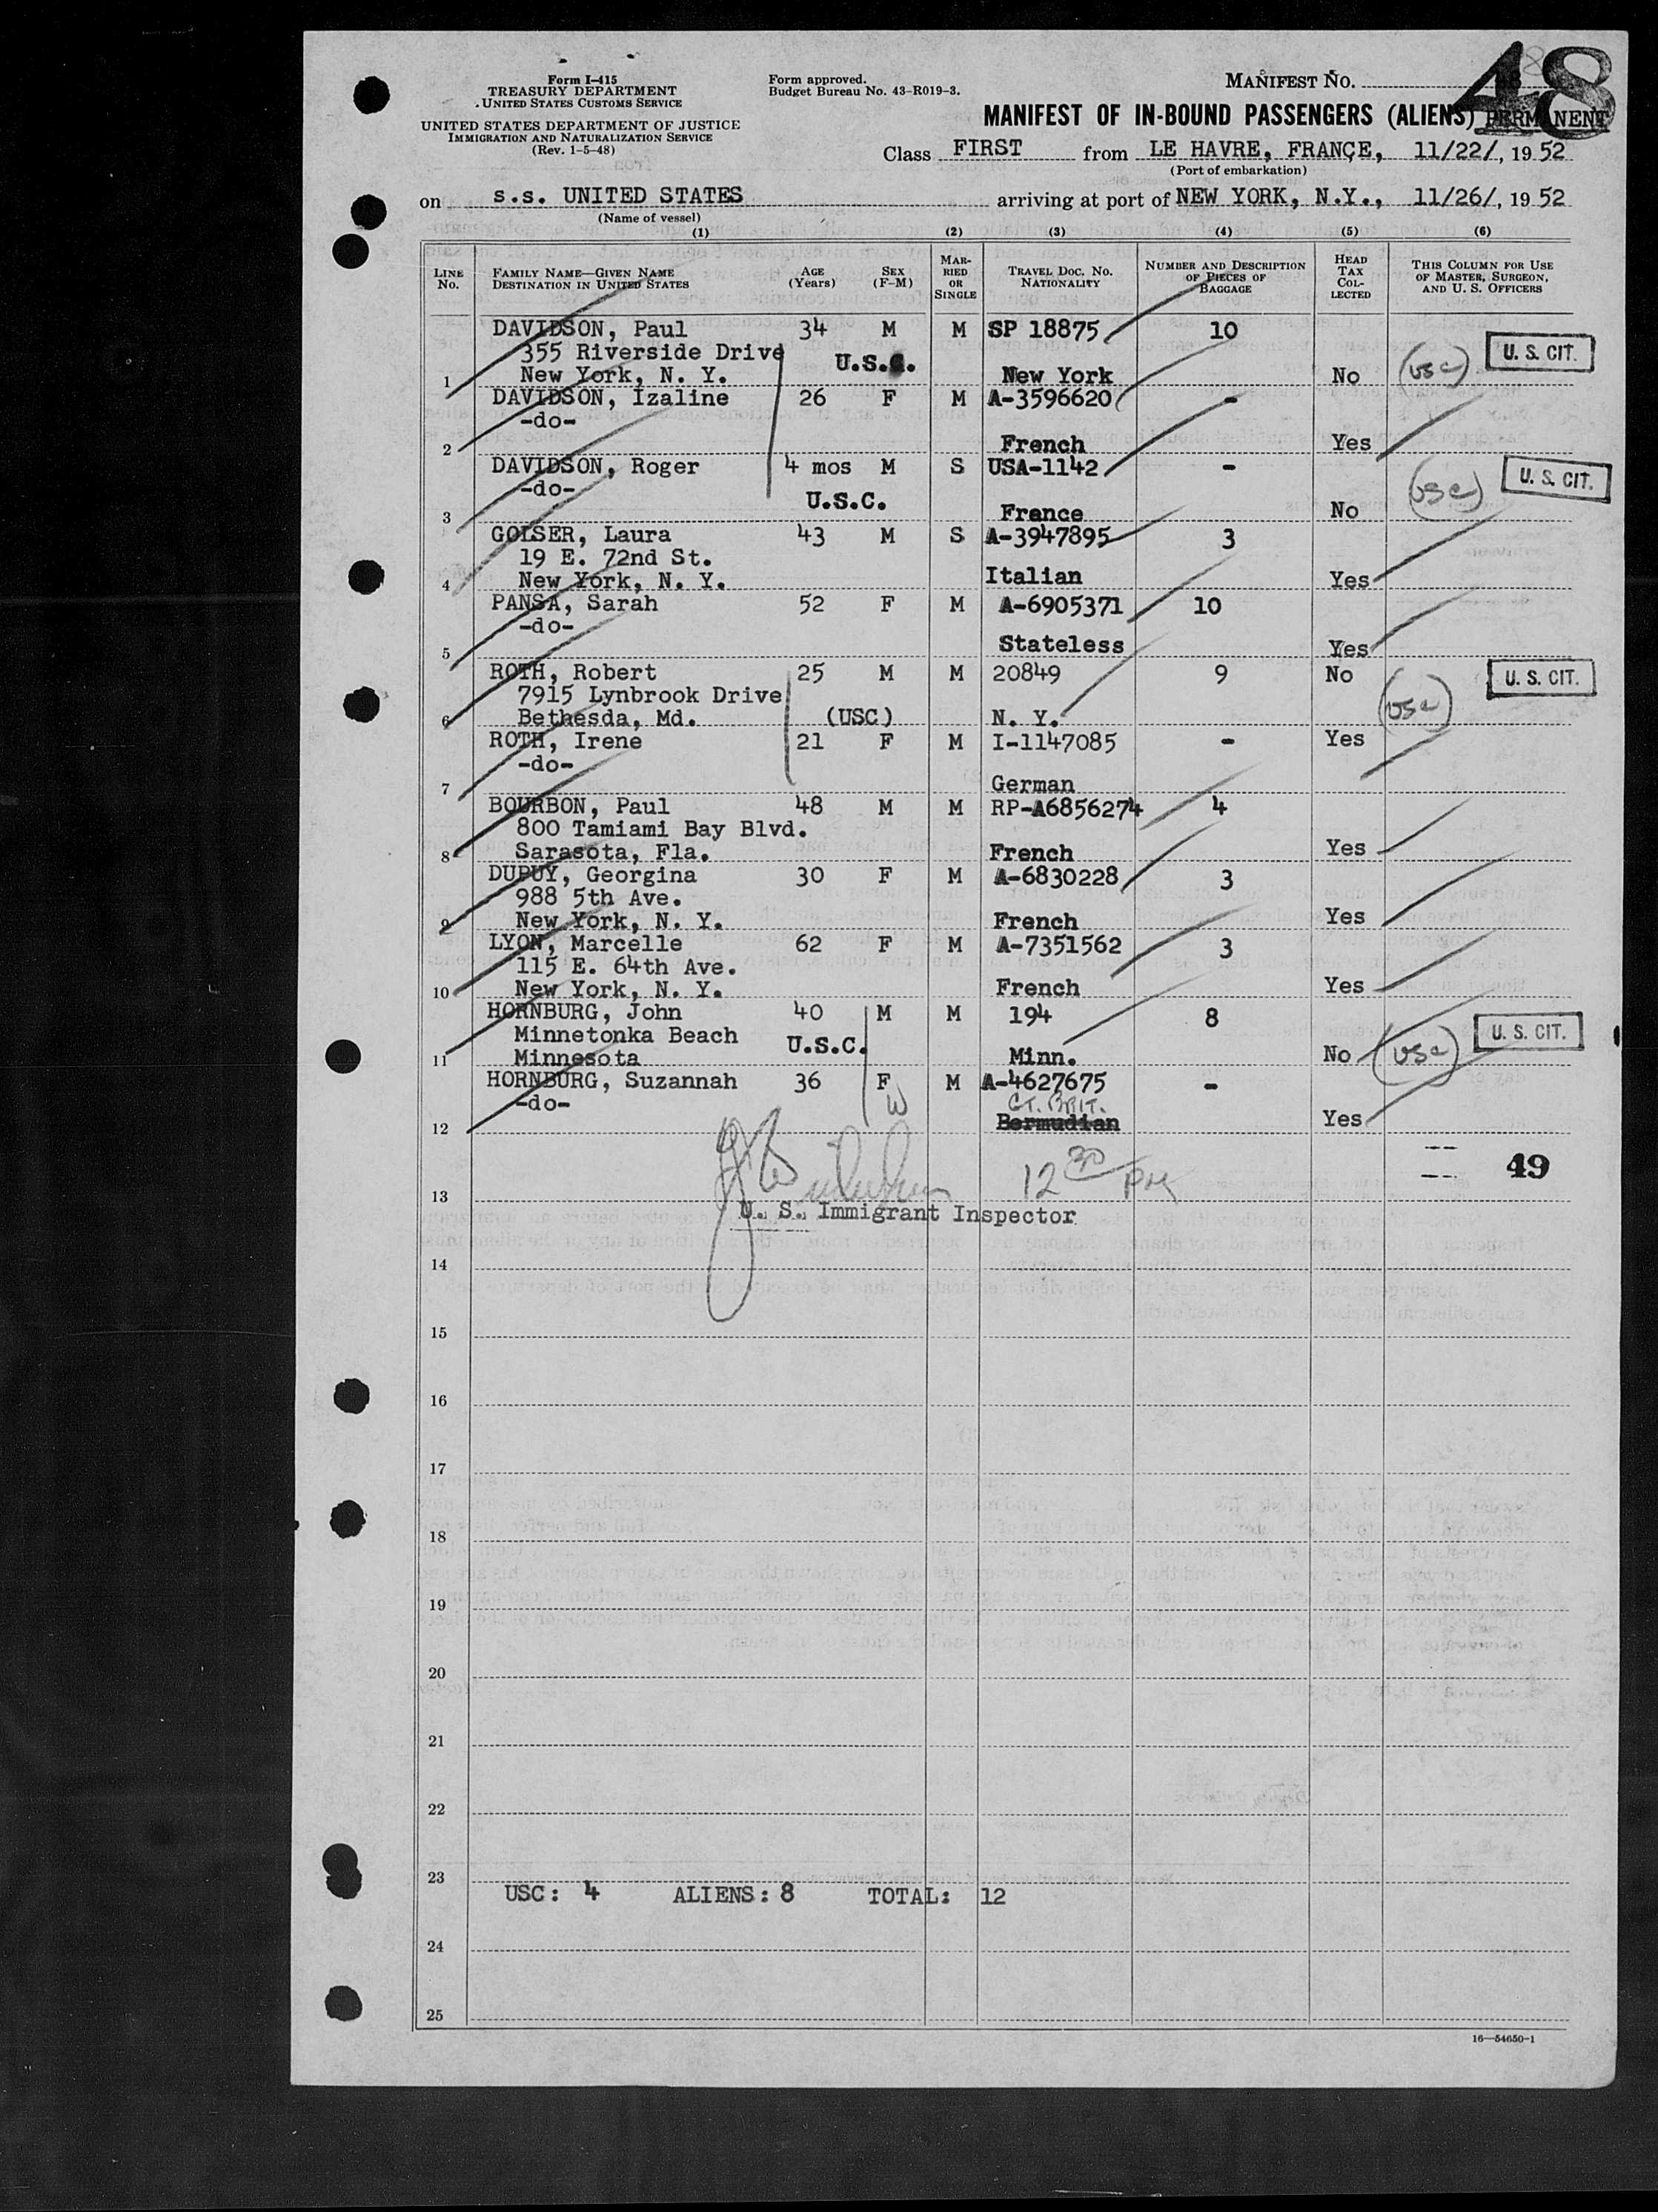 Form I-415
TREASURY DEPARTMENT
UNITED STATES CUSTOMS SERVICE
UNITED STATES DEPARTMENT OF JUSTICE
IMMIGRATION AND NATURALIZATION SERVICE
(Rev. 1-5-48)
Form approved.
Budget Bureau No. 43-R019-3.
MANIFEST NO.
48
MANIFEST OF IN-BOUND PASSENGERS (ALIENS) PERMANENT
Class FIRST from LE HAVRE, FRANCE, 11/22/, 19 52
(Port of embarkation)
on s.s. UNITED STATES arriving at port of NEW YORK, N.Y., 11/26/, 19 52
(Name of vessel)
(1) (2) (3) (4) (5) (6)
LINE No. FAMILY NAME—GIVEN NAME DESTINATION IN UNITED STATES AGE (Years) SEX (F-M) MARRIED OR SINGLE TRAVEL DOC. NO. NATIONALITY NUMBER AND DESCRIPTION OF PIECES OF BAGGAGE HEAD TAX COLLECTED THIS COLUMN FOR USE OF MASTER, SURGEON, AND U. S. OFFICERS
DAVIDSON, Paul 34 M M SP 18875 10
355 Riverside Drive U.S.C. (USC) U. S. CIT.
1 New York, N. Y. New York No
DAVIDSON, Izaline 26 F M A-3596620 -
-do-
2 French Yes
DAVIDSON, Roger 4 mos M S USA-1142 -
-do- U.S.C. (USC) U. S. CIT.
3 France No
GOLSER, Laura 43 M S A-3947895 3
19 E. 72nd St.
4 New York, N. Y. Italian Yes
PANSA, Sarah 52 F M A-6905371 10
-do-
5 Stateless Yes
ROTH, Robert 25 M M 20849 9 No U. S. CIT.
7915 Lynbrook Drive
6 Bethesda, Md. (USC) N. Y. (USC)
ROTH, Irene 21 F M I-1147085 - Yes
-do-
7 German
BOURBON, Paul 48 M M RP-A6856274 4
800 Tamiami Bay Blvd.
8 Sarasota, Fla. French Yes
DUPUY, Georgina 30 F M A-6830228 3
988 5th Ave.
9 New York, N. Y. French Yes
LYON, Marcelle 62 F M A-7351562 3
115 E. 64th Ave.
10 New York, N. Y. French Yes
HORNBURG, John 40 M M 194 8
Minnetonka Beach U.S.C. U. S. CIT.
11 Minnesota Minn. No (USC)
HORNBURG, Suzannah 36 F M A-4627675 -
-do- W GT. BRIT.
12 Bermudian Yes
49
12 30 PM
13
U. S. Immigrant Inspector
14
15
16
17
18
19
20
21
22
23
USC: 4 ALIENS: 8 TOTAL: 12
24
25
16—54650-1